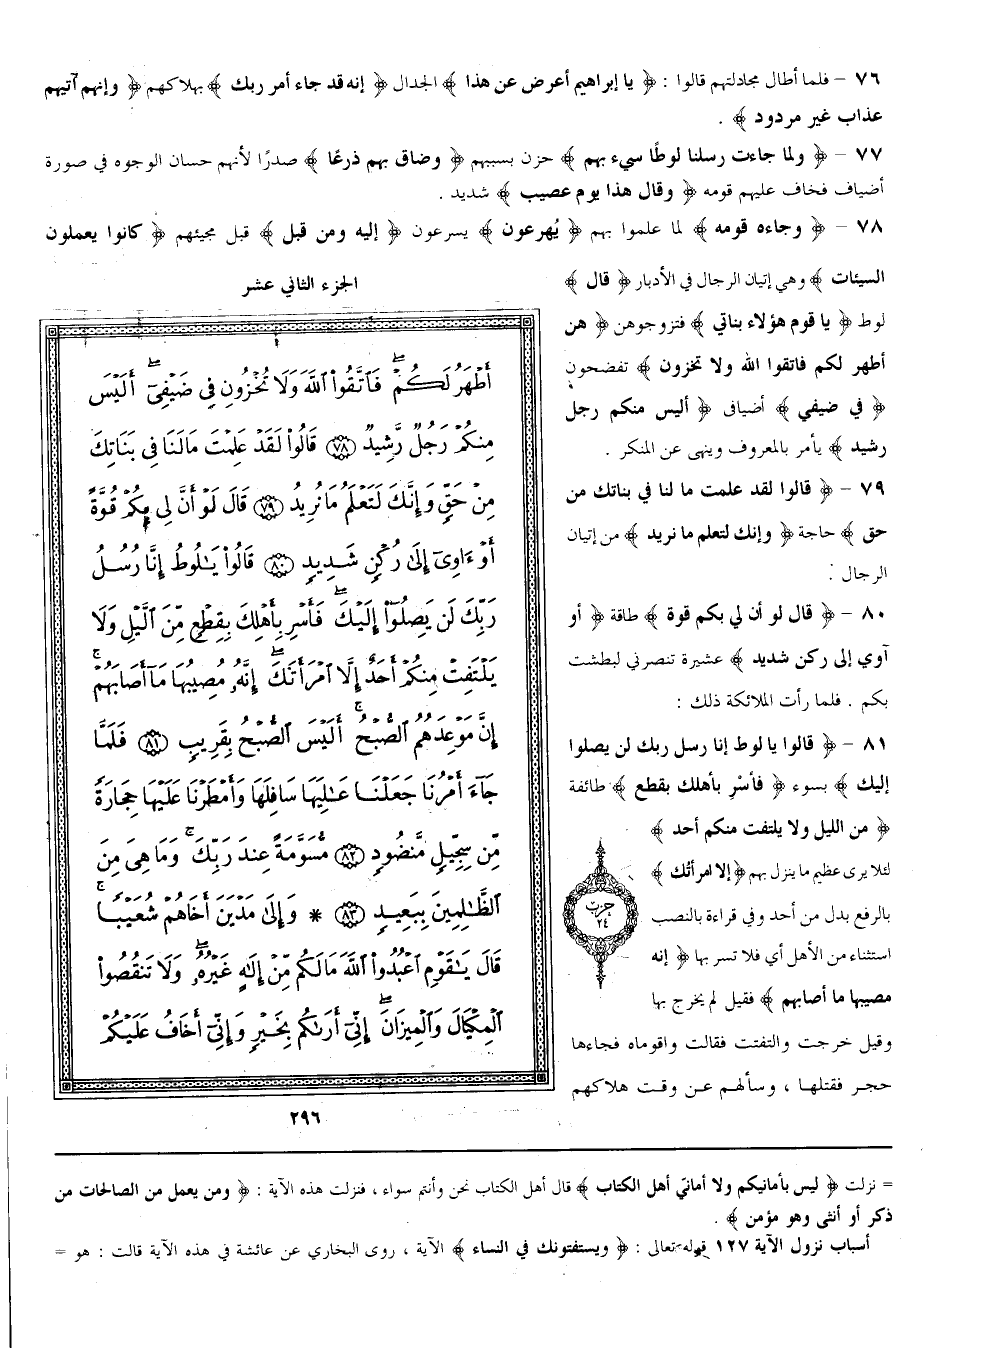 ٧٦ – فلما أطال مجادلتهم قالوا : ﴿ يا إبراهيم أعرض عن هذا ﴾ الجدال ﴿ إنه قد جاء أمر ربك ﴾ بهلاكهم ﴿ وإنهم آتيهم
عذاب غير مردود ﴾ .
٧٧ – ﴿ ولما جاءت رسلنا لوطًا سيء بهم ﴾ حزن بسببهم ﴿ وضاق بهم ذرعًا ﴾ صدرًا لأنهم حسان الوجوه في صورة
أضياف فخاف عليهم قومه ﴿ وقال هذا يوم عصيب ﴾ شديد .
٧٨ – ﴿ وجاءه قومه ﴾ لما علموا بهم ﴿ يُهرعون ﴾ يسرعون ﴿ إليه ومن قبل ﴾ قبل مجيئهم ﴿ كانوا يعملون
السيئات ﴾ وهي إتيان الرجال في الأدبار ﴿ قال ﴾
لوط ﴿ يا قوم هؤلاء بناتي ﴾ فتزوجوهن ﴿ هن
أطهر لكم فاتقوا الله ولا تخزون ﴾ تفضحون
﴿ في ضيفي ﴾ أضيافي ﴿ أليس منكم رجل
رشيد ﴾ يأمر بالمعروف وينهى عن المنكر .
٧٩ – ﴿ قالوا لقد علمت ما لنا في بناتك من
حق ﴾ حاجة ﴿ وإنك لتعلم ما نريد ﴾ من إتيان
الرجال .
٨٠ – ﴿ قال لو أن لي بكم قوة ﴾ طاقة ﴿ أو
آوي إلى ركن شديد ﴾ عشيرة تنصرني لبطشت
بكم . فلما رأت الملائكة ذلك :
٨١ – ﴿ قالوا يا لوط إنا رسل ربك لن يصلوا
إليك ﴾ بسوء ﴿ فأسْرِ بأهلك بقطع ﴾ طائفة
﴿ من الليل ولا يلتفت منكم أحد ﴾
لئلا يرى عظيم ما ينزل بهم ﴿ إلا امرأتُك ﴾
بالرفع بدل من أحد وفي قراءة بالنصب
استثناء من الأهل أي فلا تسر بها ﴿ إنه
مصيبها ما أصابهم ﴾ فقيل لم يخرج بها
وقيل خرجت والتفتت فقالت واقوماه فجاءها
حجر فقتلها ، وسألهم عن وقت هلاكهم
حزب
٢٤
الجزء الثاني عشر
أَطْهَرُ لَكُمْ ۖ فَاتَّقُوا۟ ٱللَّهَ وَلَا تُخْزُونِ فِى ضَيْفِىٓ ۖ أَلَيْسَ
مِنكُمْ رَجُلٌ رَّشِيدٌ ٧٨ قَالُوا۟ لَقَدْ عَلِمْتَ مَا لَنَا فِى بَنَاتِكَ
مِنْ حَقٍّ وَإِنَّكَ لَتَعْلَمُ مَا نُرِيدُ ٧٩ قَالَ لَوْ أَنَّ لِى بِكُمْ قُوَّةً
أَوْ ءَاوِىٓ إِلَىٰ رُكْنٍ شَدِيدٍ ٨٠ قَالُوا۟ يَـٰلُوطُ إِنَّا رُسُلُ
رَبِّكَ لَن يَصِلُوٓا۟ إِلَيْكَ ۖ فَأَسْرِ بِأَهْلِكَ بِقِطْعٍ مِّنَ ٱلَّيْلِ وَلَا
يَلْتَفِتْ مِنكُمْ أَحَدٌ إِلَّا ٱمْرَأَتَكَ ۖ إِنَّهُۥ مُصِيبُهَا مَآ أَصَابَهُمْ ۚ
إِنَّ مَوْعِدَهُمُ ٱلصُّبْحُ ۚ أَلَيْسَ ٱلصُّبْحُ بِقَرِيبٍ ٨١ فَلَمَّا
جَآءَ أَمْرُنَا جَعَلْنَا عَـٰلِيَهَا سَافِلَهَا وَأَمْطَرْنَا عَلَيْهَا حِجَارَةً
مِّن سِجِّيلٍ مَّنضُودٍ ٨٢ مُّسَوَّمَةً عِندَ رَبِّكَ ۖ وَمَا هِىَ مِنَ
ٱلظَّـٰلِمِينَ بِبَعِيدٍ ٨٣ * وَإِلَىٰ مَدْيَنَ أَخَاهُمْ شُعَيْبًا ۚ
قَالَ يَـٰقَوْمِ ٱعْبُدُوا۟ ٱللَّهَ مَا لَكُم مِّنْ إِلَـٰهٍ غَيْرُهُۥ ۖ وَلَا تَنقُصُوا۟
ٱلْمِكْيَالَ وَٱلْمِيزَانَ ۚ إِنِّىٓ أَرَىٰكُم بِخَيْرٍ وَإِنِّىٓ أَخَافُ عَلَيْكُمْ
٢٩٦
= نزلت ﴿ ليس بأمانيكم ولا أمانيّ أهل الكتاب ﴾ قال أهل الكتاب نحن وأنتم سواء ، فنزلت هذه الآية : ﴿ ومن يعمل من الصالحات من
ذكر أو أنثى وهو مؤمن ﴾ .
أسباب نزول الآية ١٢٧ قوله تعالى : ﴿ ويستفتونك في النساء ﴾ الآية ، روى البخاري عن عائشة في هذه الآية قالت : هو =